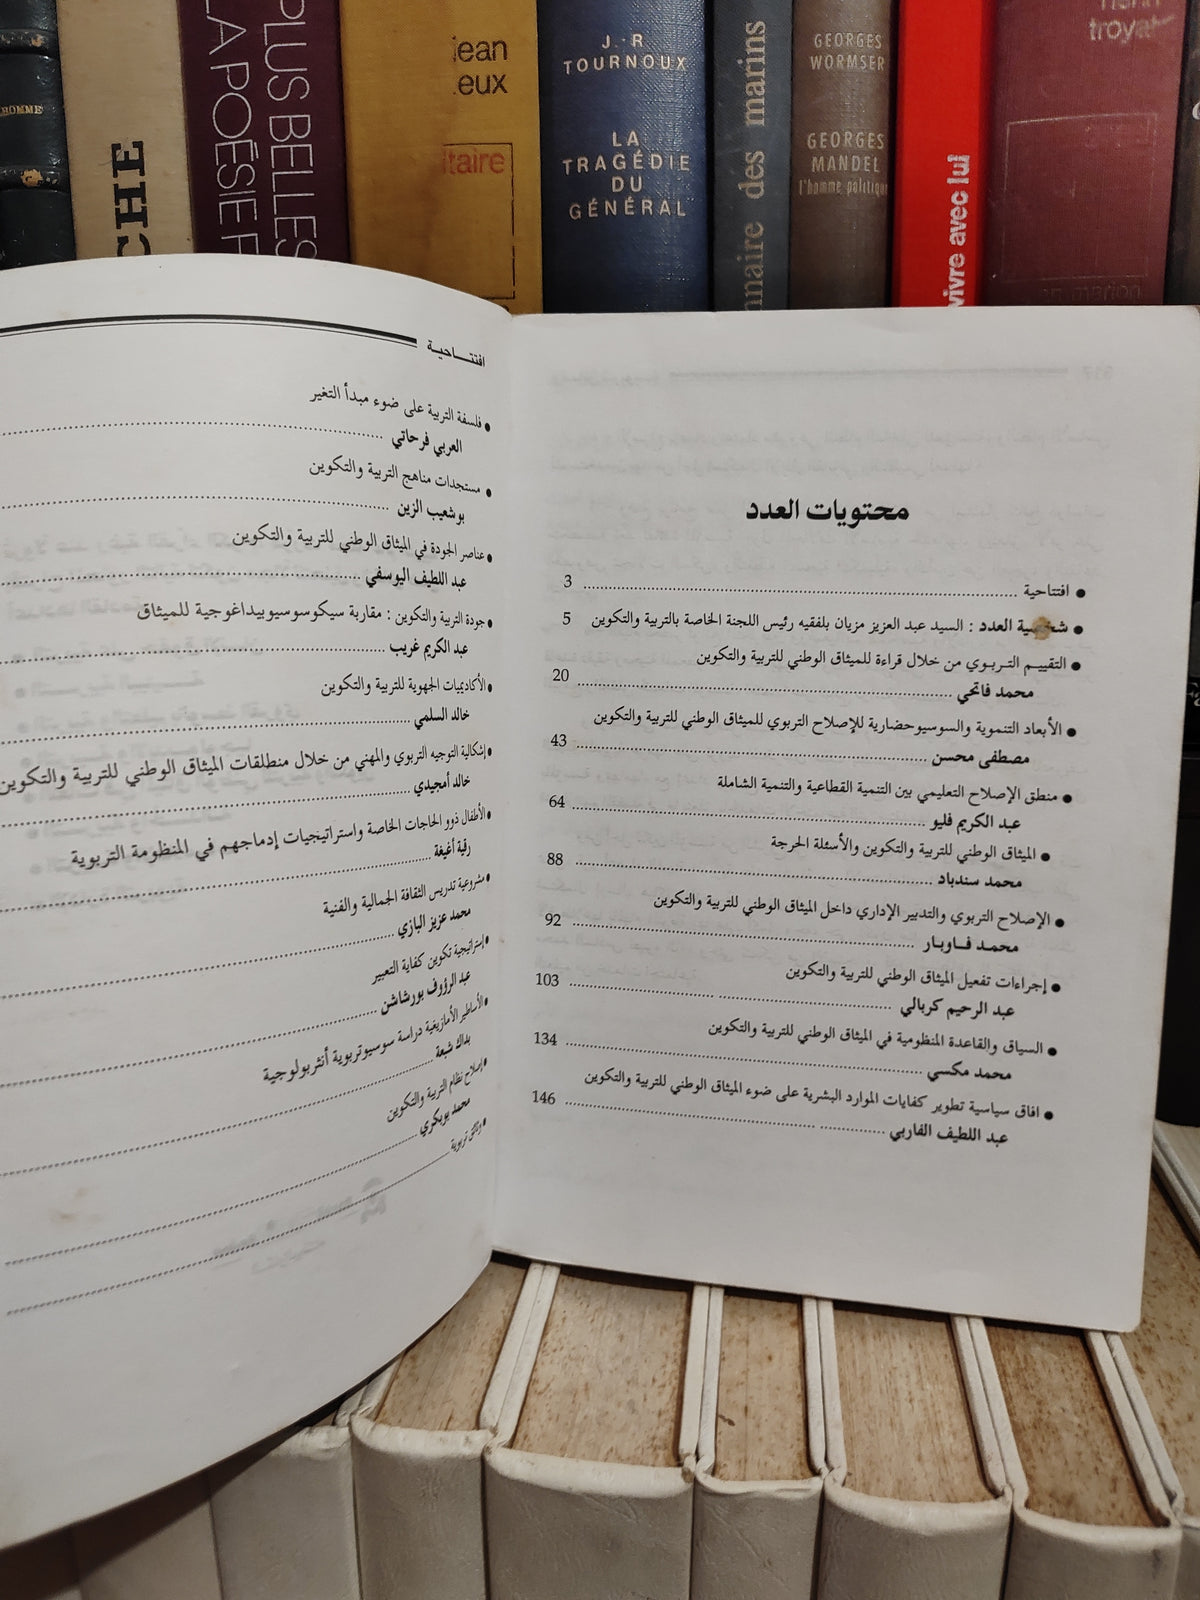 HOMME
CHE
PLUS BELLES
LA POÉSIE F
jean
eux
itaire
J.-R
TOURNOUX
LA
TRAGÉDIE
DU
GÉNÉRAL
nnaire des marins
GEORGES
WORMSER
GEORGES
MANDEL
l'homme politique
vivre avec lui
troyat
محتويات العدد
● افتتاحية ........ 3
● شخصية العدد : السيد عبد العزيز مزيان بلفقيه رئيس اللجنة الخاصة بالتربية والتكوين 5
● التقييم التربوي من خلال قراءة للميثاق الوطني للتربية والتكوين
محمد فاتحي ........ 20
● الأبعاد التنموية والسوسيوحضارية للإصلاح التربوي للميثاق الوطني للتربية والتكوين
مصطفى محسن ........ 43
● منطق الإصلاح التعليمي بين التنمية القطاعية والتنمية الشاملة
عبد الكريم فليو ........ 64
● الميثاق الوطني للتربية والتكوين والأسئلة الحرجة
محمد سندباد ........ 88
● الإصلاح التربوي والتدبير الإداري داخل الميثاق الوطني للتربية والتكوين
محمد فاوبار ........ 92
● إجراءات تفعيل الميثاق الوطني للتربية والتكوين
عبد الرحيم كربالي ........ 103
● السياق والقاعدة المنظومية في الميثاق الوطني للتربية والتكوين
محمد مكسي ........ 134
● افاق سياسية تطوير كفايات الموارد البشرية على ضوء الميثاق الوطني للتربية والتكوين
عبد اللطيف الفاربي ........ 146
افتتاحية
● فلسفة التربية على ضوء مبدأ التغير
العربي فرحاتي ........
● مستجدات مناهج التربية والتكوين
بوشعيب الزين ........
● عناصر الجودة في الميثاق الوطني للتربية والتكوين
عبد اللطيف اليوسفي ........
● جودة التربية والتكوين : مقاربة سيكوسوسيوبيداغوجية للميثاق
عبد الكريم غريب ........
● الأكاديميات الجهوية للتربية والتكوين
خالد السلمي ........
● إشكالية التوجيه التربوي والمهني من خلال منطلقات الميثاق الوطني للتربية والتكوين
خالد أمجيدي ........
● الأطفال ذوو الحاجات الخاصة واستراتيجيات إدماجهم في المنظومة التربوية
رقية أغيغة ........
● مشروعية تدريس الثقافة الجمالية والفنية
محمد عزيز البازي ........
● إستراتيجية تكوين كفاية التعبير
عبد الرؤوف بورشاشن ........
● الأساطير الأمازيغية دراسة سوسيوتربوية أنثربولوجية
بداك شبعة ........
● إصلاح نظام التربية والتكوين
محمد بوبكري ........
● وثائق تربوية ........